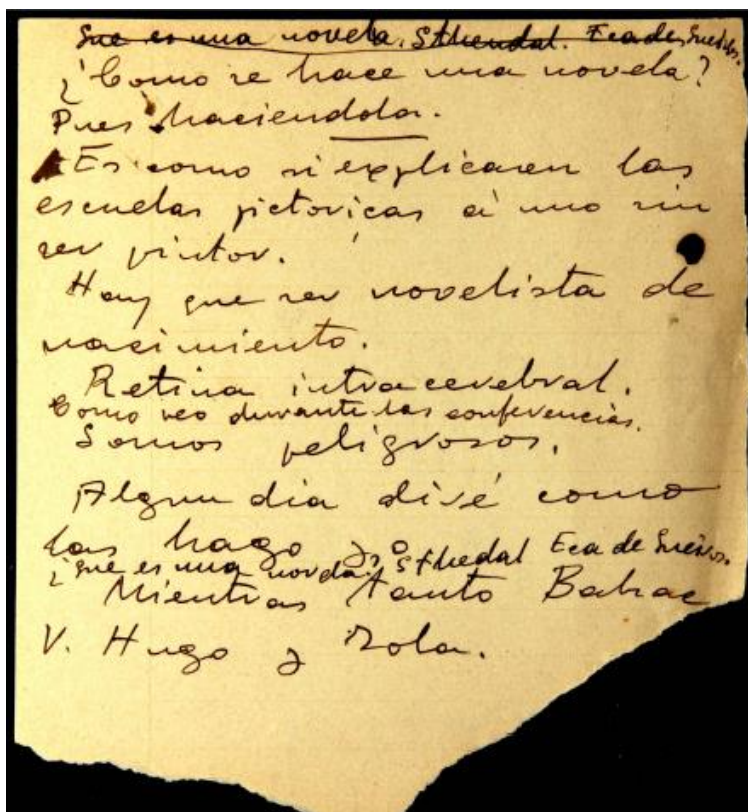 Que es una novela. Sthendal. Eca de Queiros.
¿Como se hace una novela?
Pues haciendola.
Es como si explicasen las
escuelas pictoricas á uno sin
ser pintor.
Hay que ser novelista de
nacimiento.
Retina intracerebral.
Como veo durante las conferencias.
Somos peligrosos.
Algun dia diré como
las hago yo
¿Que es una novela? Sthedal Eca de Queiros.
Mientras tanto Balzac
V. Hugo y Zola.